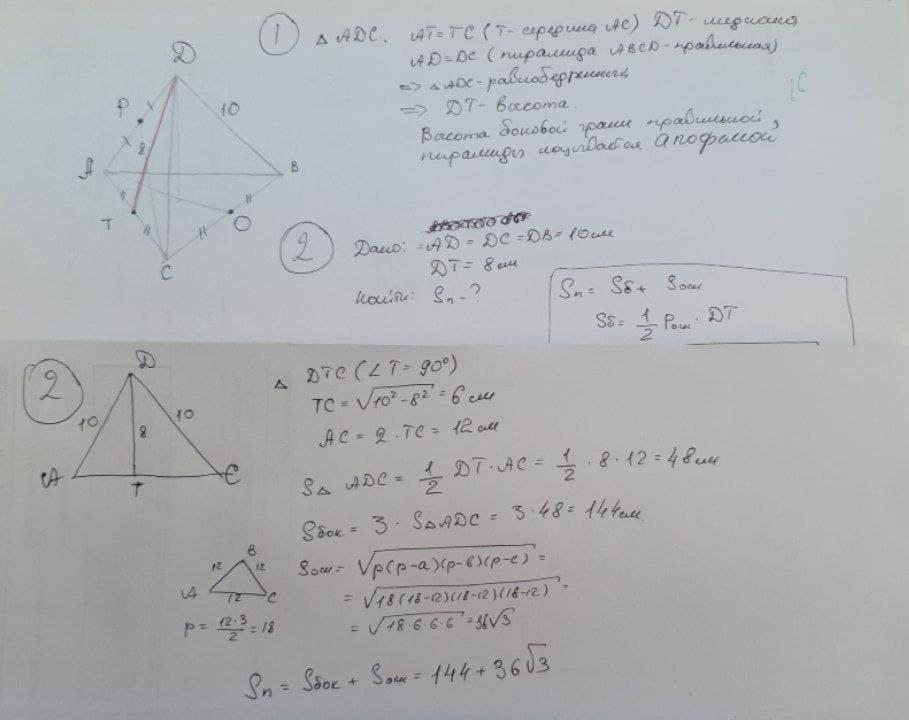 1
△ ADC. AT=TC (T- середина AC) DT- медиана
AD=DC (пирамида ABCD-правильная)
=> △ADC-равнобедренный
=> DT- высота.
Высота боковой грани правильной,
пирамиды называется Апофемой
D
P
10
8
A
B
T
O
C
2
Дано: =AD = DC =DB= 10см
DT= 8см
Найти: Sп-?
Sп= Sб+ Sосн
Sб= 1/2 Pосн · DT
2
D
10
10
8
A
T
C
△ DTC (∠T= 90°)
TC= √10²-8² = 6см
AC = 2 · TC = 12см
S△ ADC = 1/2 DT · AC = 1/2 · 8 · 12 = 48см
Sбок = 3 · S△ADC = 3·48 = 144см
B
12
12
A
12
C
p= 12·3/2 = 18
Sосн= √p(p-a)(p-b)(p-c) =
= √18(18-12)(18-12)(18-12) =
= √18·6·6·6 =36√3
Sп = Sбок + Sосн = 144 + 36√3